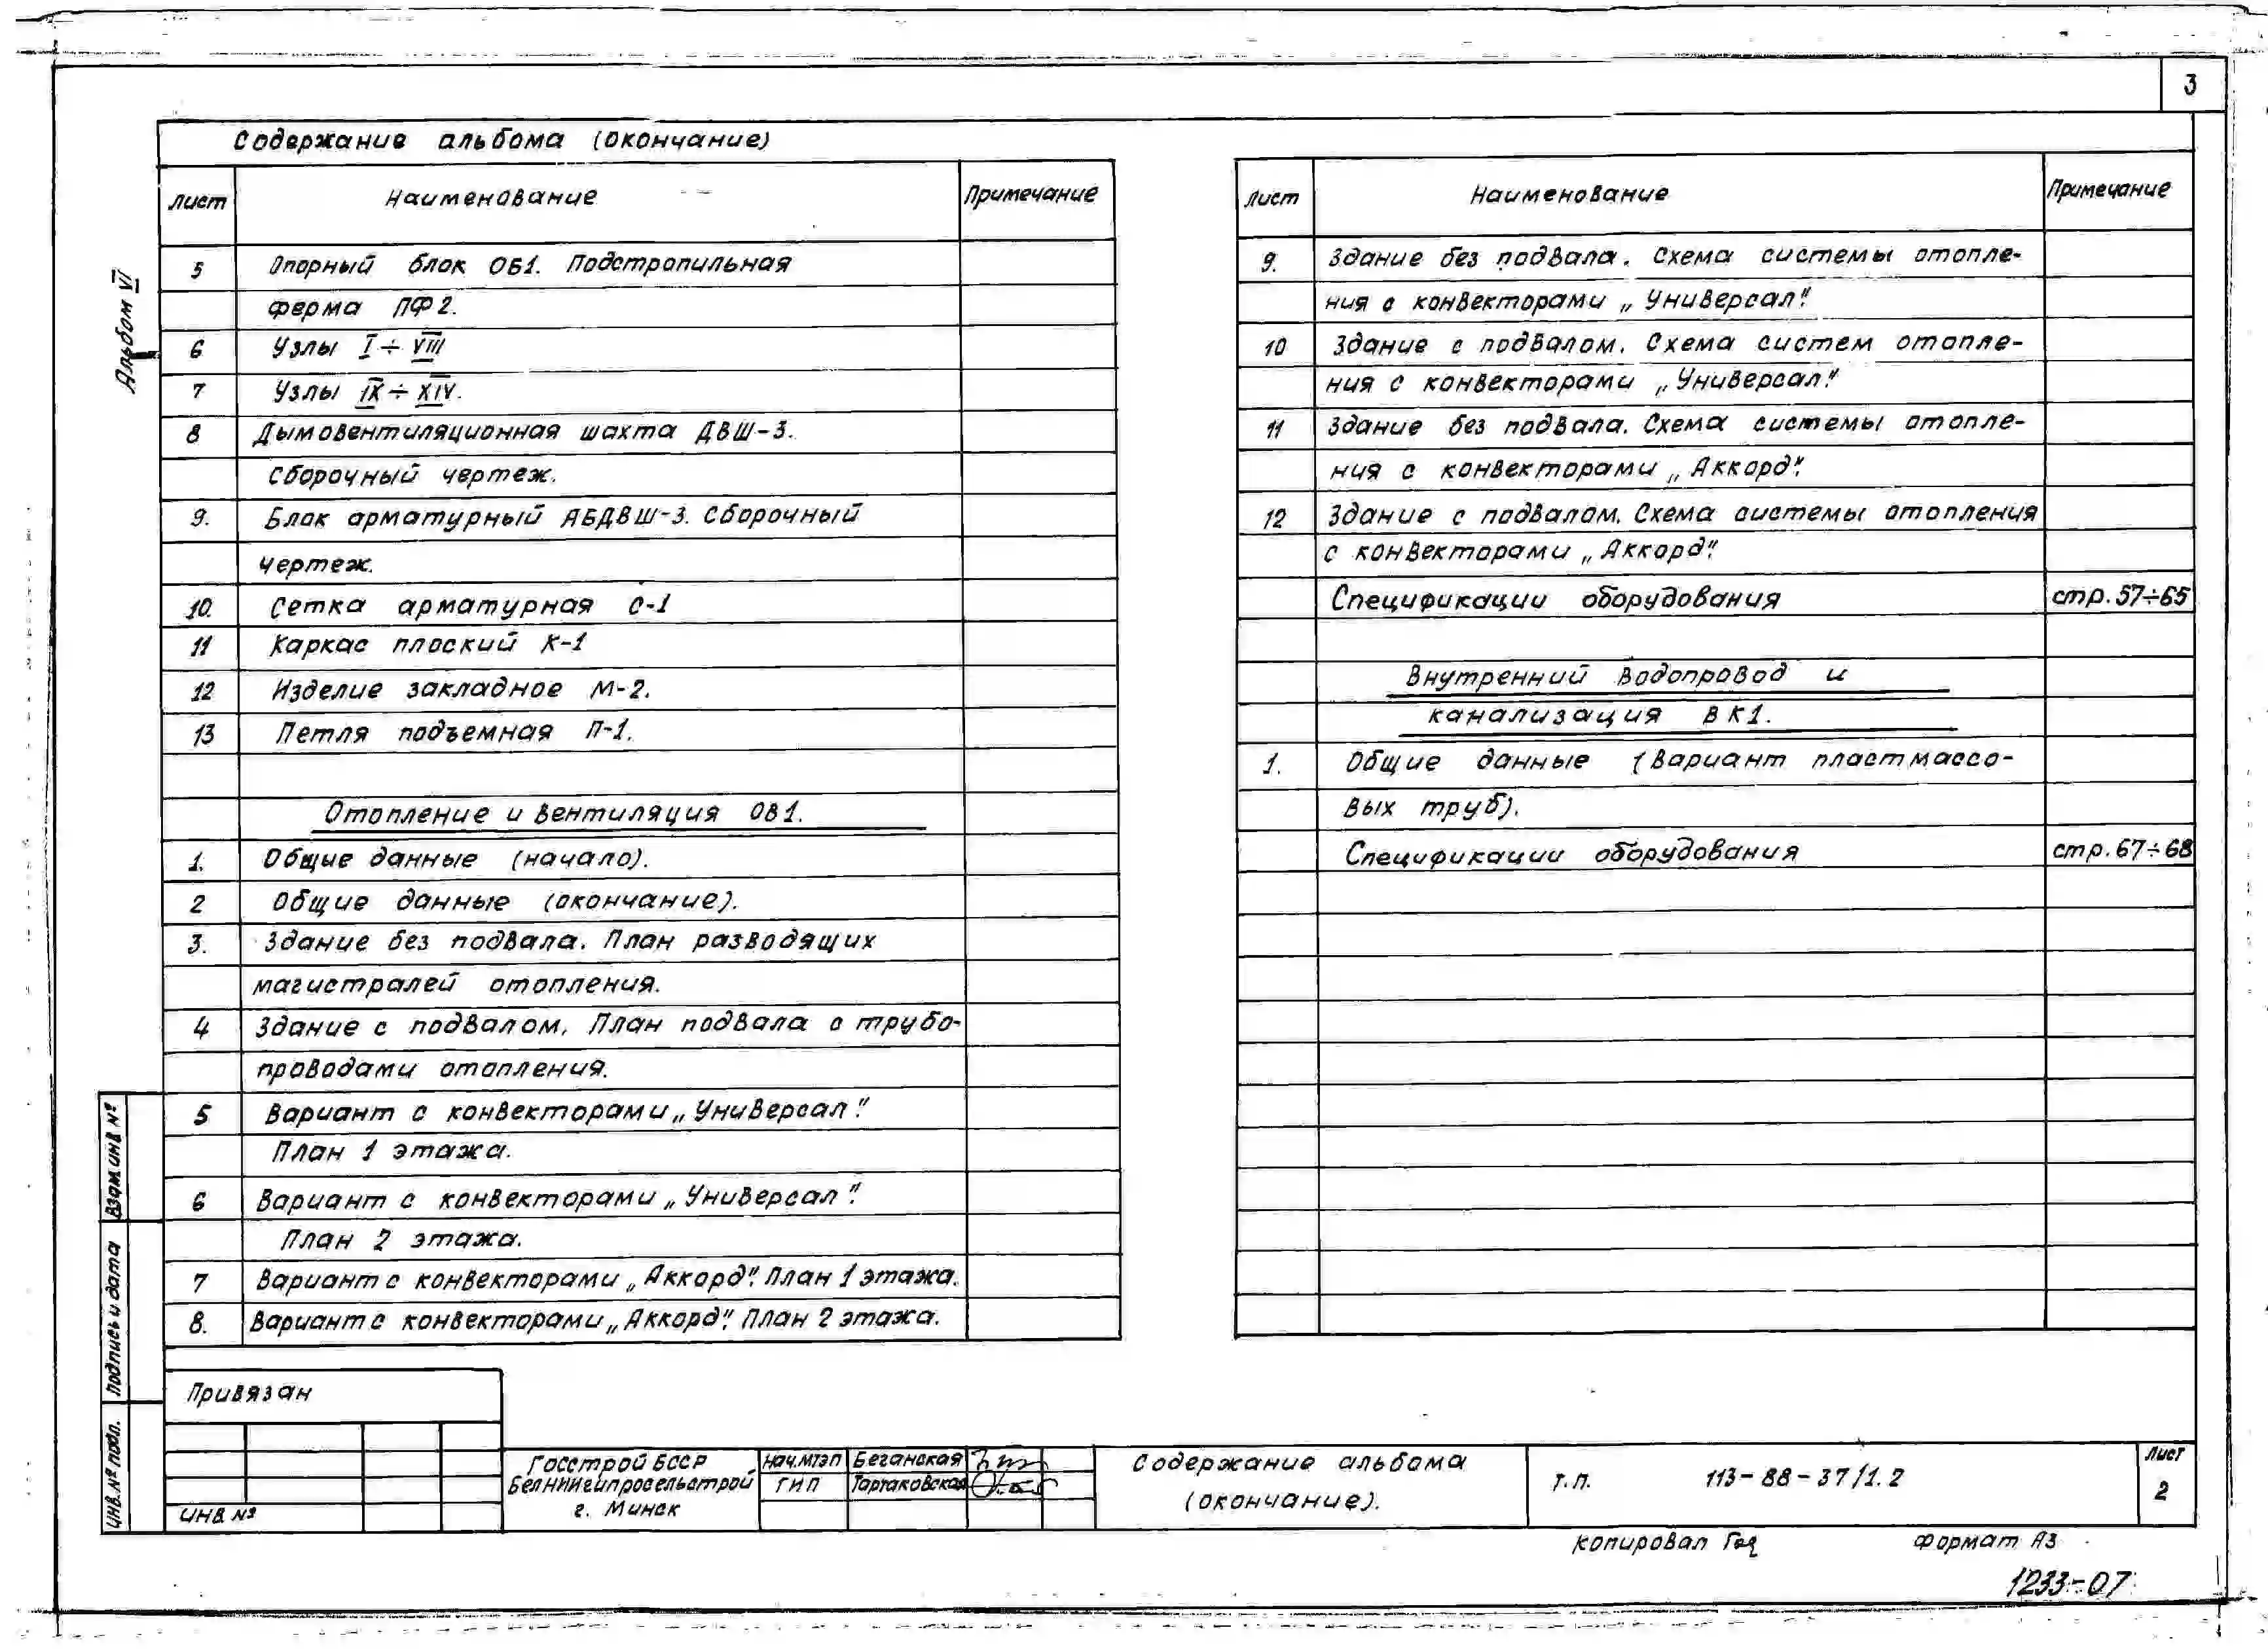 3
Содержание альбома (окончание)
Лист Наименование Примечание
5 Опорный блок ОБ1. Подстропильная
ферма ПФ2.
6 Узлы I÷VIII
7 Узлы IX÷XIV.
8 Дымовентиляционная шахта ДВШ-3.
Сборочный чертеж.
9. Блок арматурный АБДВШ-3. Сборочный
чертеж.
10. Сетка арматурная С-1
11 Каркас плоский К-1
12 Изделие закладное М-2.
13 Петля подъемная П-1.
Отопление и вентиляция ОВ1.
1. Общие данные (начало).
2 Общие данные (окончание).
3. Здание без подвала. План разводящих
магистралей отопления.
4 Здание с подвалом. План подвала с трубо-
проводами отопления.
5 Вариант с конвекторами „Универсал".
План 1 этажа.
6 Вариант с конвекторами „Универсал".
План 2 этажа.
7 Вариант с конвекторами „Аккорд". План 1 этажа.
8. Вариант с конвекторами „Аккорд". План 2 этажа.
Лист Наименование Примечание
9. Здание без подвала. Схема системы отопле-
ния с конвекторами „Универсал".
10 Здание с подвалом. Схема систем отопле-
ния с конвекторами „Универсал".
11 Здание без подвала. Схема системы отопле-
ния с конвекторами „Аккорд".
12 Здание с подвалом. Схема системы отопления
с конвекторами „Аккорд".
Спецификации оборудования стр.57÷65
Внутренний водопровод и
канализация ВК1.
1. Общие данные (вариант пластмассо-
вых труб).
Спецификации оборудования стр.67÷68
Альбом VI
Взам.инв №
Подпись и дата
Инв.№ подл.
Привязан
Инв №
Госстрой БССР
Белниигипросельстрой
г. Минск
Нач.МТЭП Беганская
ГИП Тартаковская
Содержание альбома
(окончание).
Т.П. 113-88-37/1.2
Лист
2
Копировал
Формат А3
1233-07